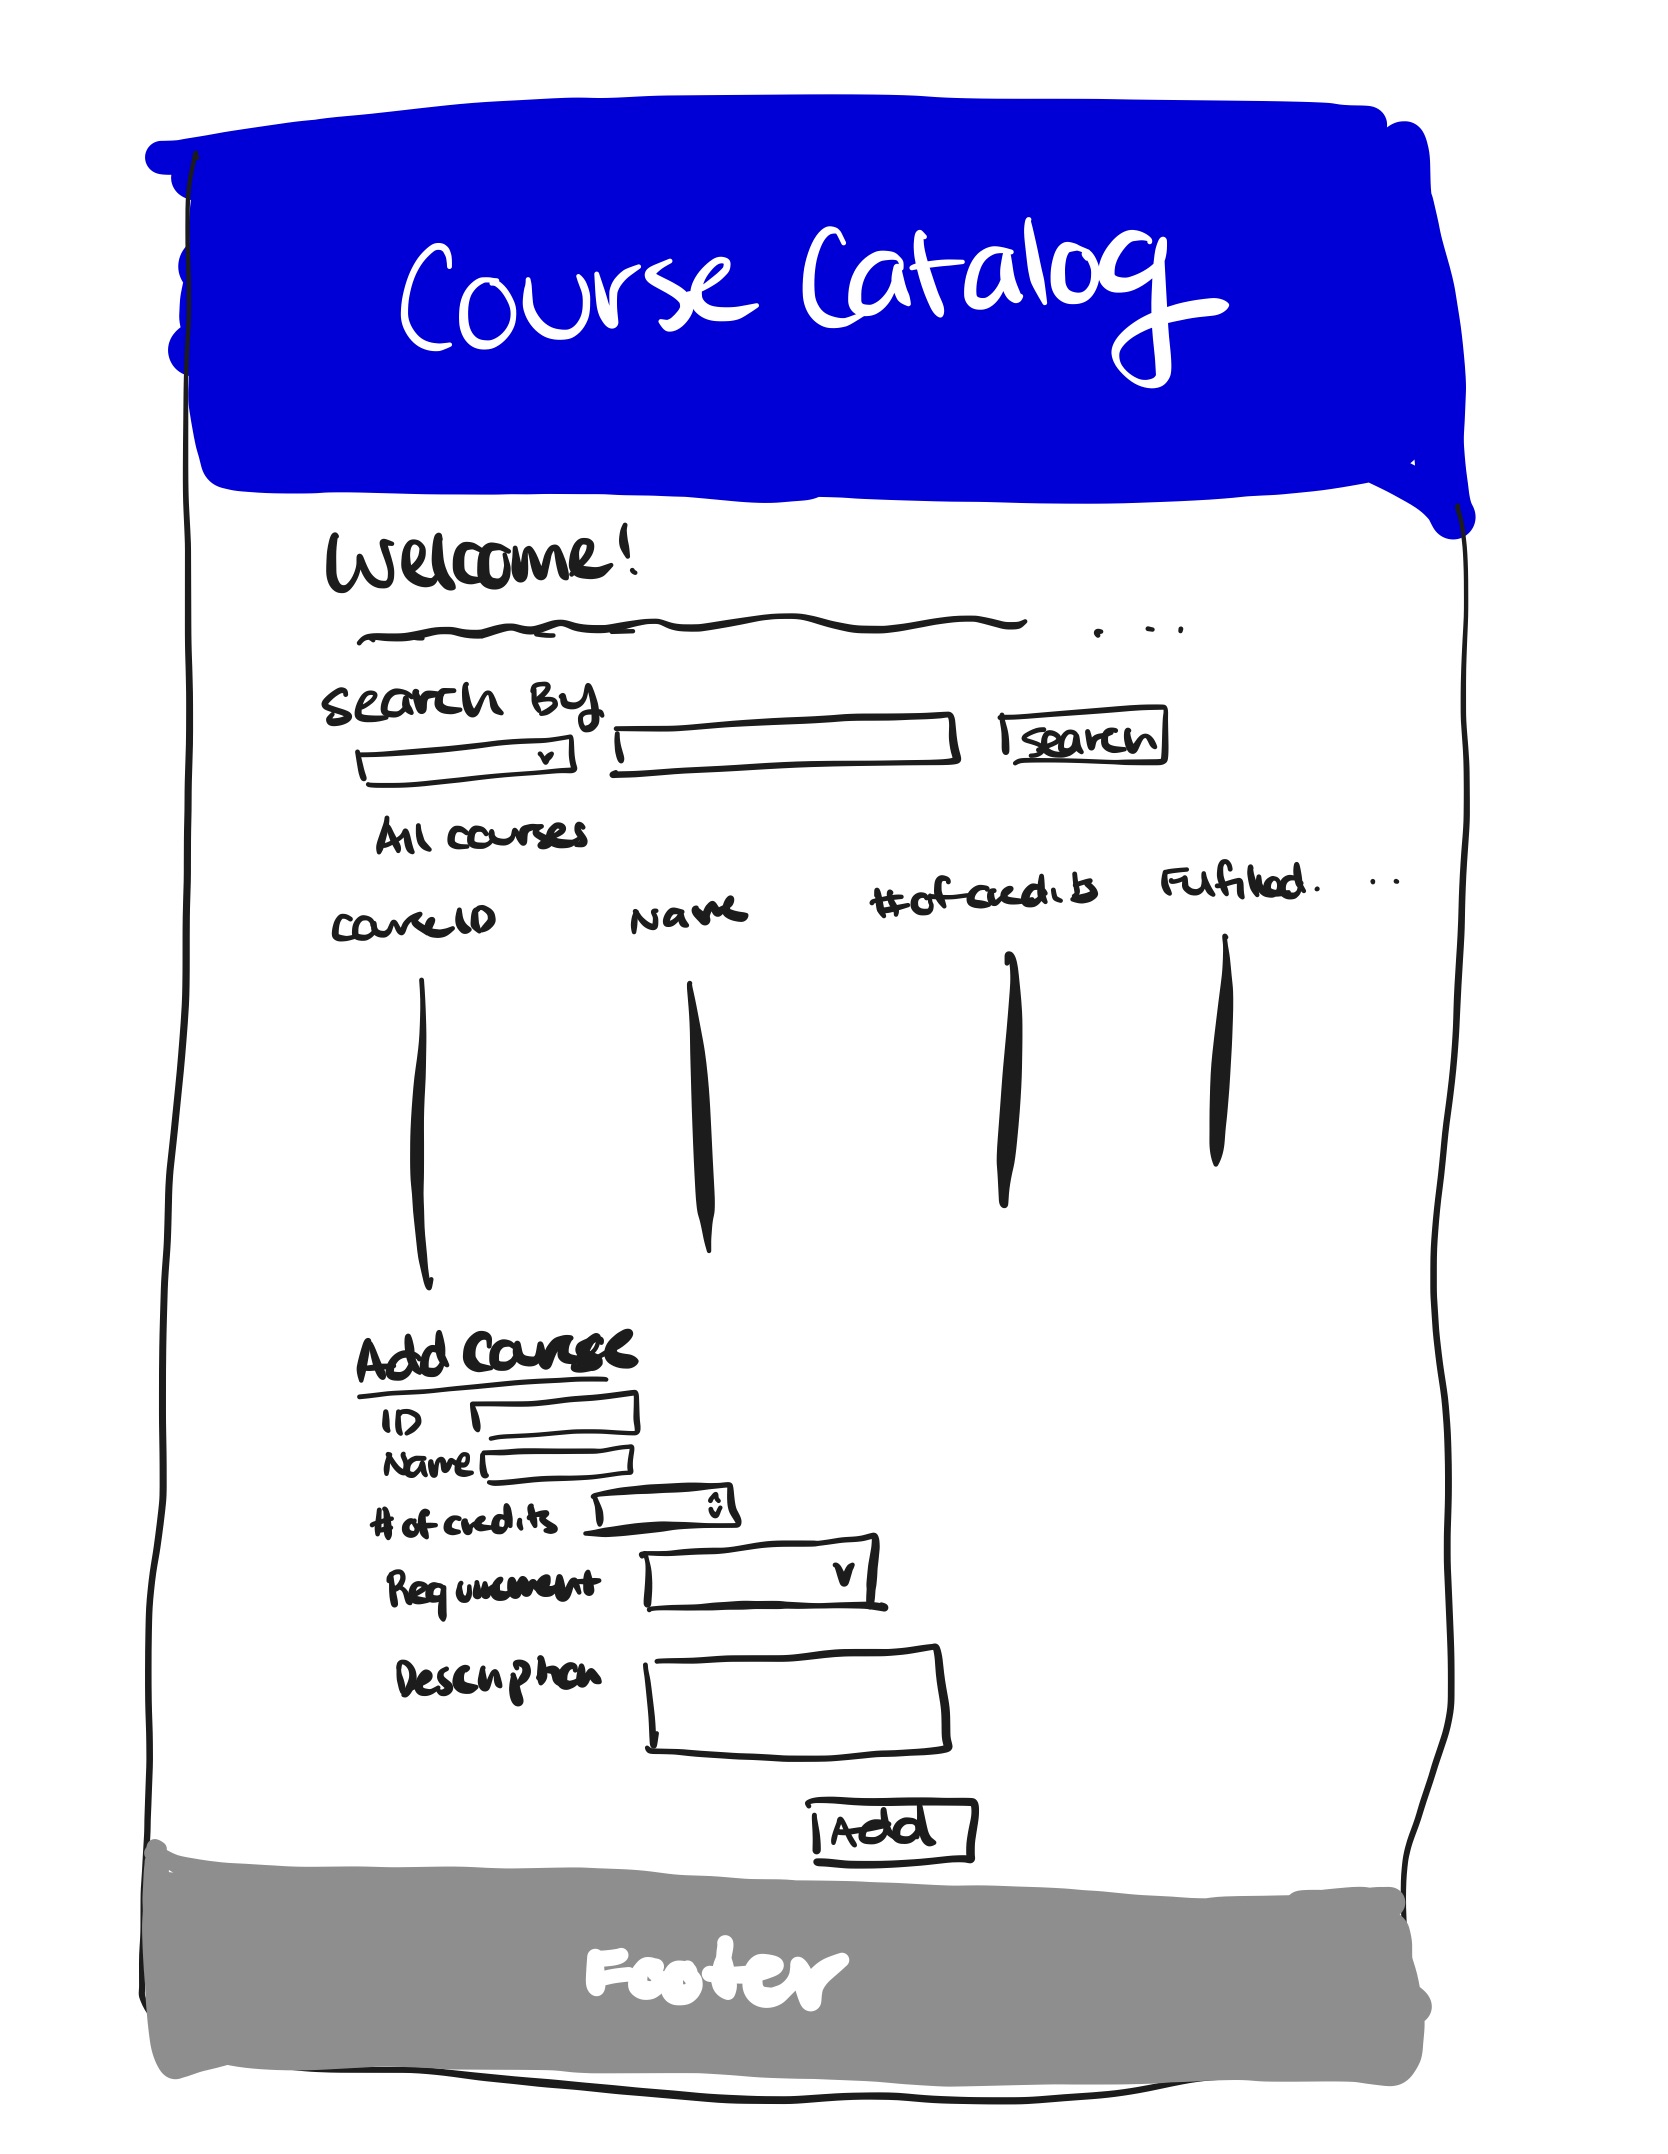 Course Catalog
Welcome!
Search By
Search
All courses
course ID
Name
# of credits
Fulfilled. ..
Add Course
ID
Name
# of credits
Requirement
Description
Add
Footer